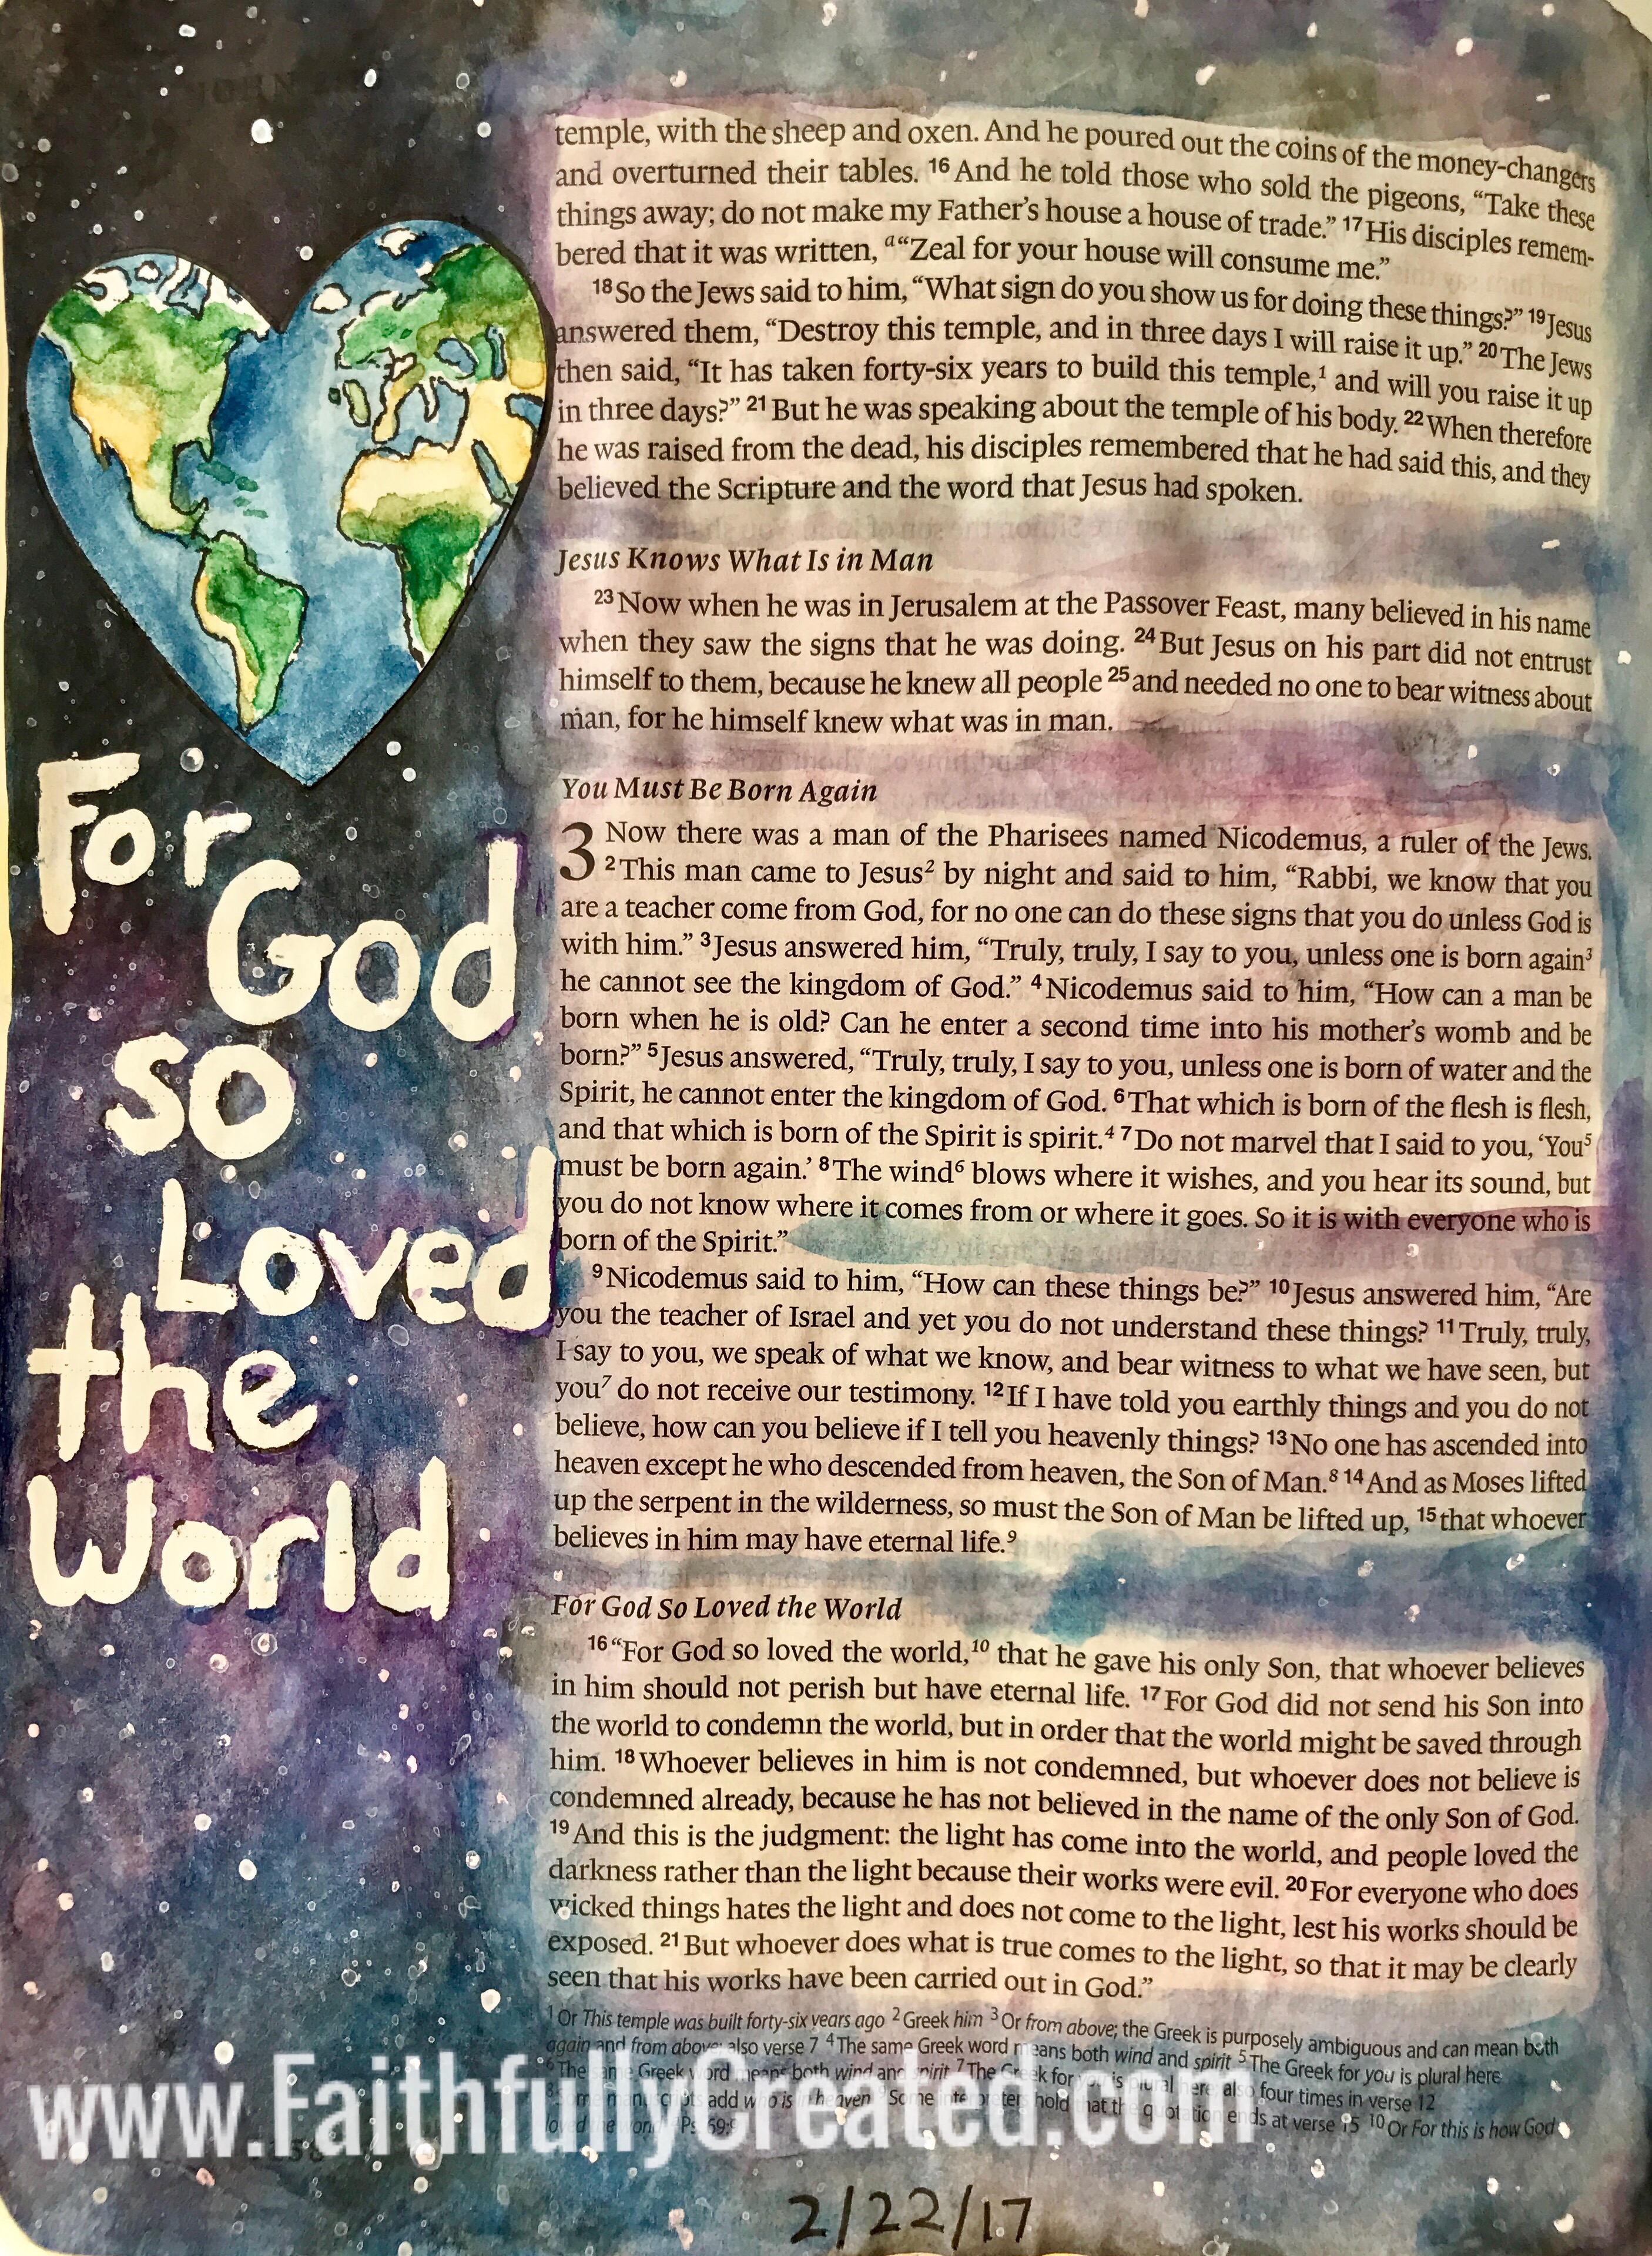 JOHN
temple, with the sheep and oxen. And he poured out the coins of the money-changers
and overturned their tables. 16 And he told those who sold the pigeons, “Take these
things away; do not make my Father’s house a house of trade.” 17 His disciples remem-
bered that it was written, a “Zeal for your house will consume me.”
18 So the Jews said to him, “What sign do you show us for doing these things?” 19 Jesus
answered them, “Destroy this temple, and in three days I will raise it up.” 20 The Jews
then said, “It has taken forty-six years to build this temple,1 and will you raise it up
in three days?” 21 But he was speaking about the temple of his body. 22 When therefore
he was raised from the dead, his disciples remembered that he had said this, and they
believed the Scripture and the word that Jesus had spoken.
Jesus Knows What Is in Man
23 Now when he was in Jerusalem at the Passover Feast, many believed in his name
when they saw the signs that he was doing. 24 But Jesus on his part did not entrust
himself to them, because he knew all people 25 and needed no one to bear witness about
man, for he himself knew what was in man.
You Must Be Born Again
3 Now there was a man of the Pharisees named Nicodemus, a ruler of the Jews.
2 This man came to Jesus2 by night and said to him, “Rabbi, we know that you
are a teacher come from God, for no one can do these signs that you do unless God is
with him.” 3 Jesus answered him, “Truly, truly, I say to you, unless one is born again3
he cannot see the kingdom of God.” 4 Nicodemus said to him, “How can a man be
born when he is old? Can he enter a second time into his mother’s womb and be
born?” 5 Jesus answered, “Truly, truly, I say to you, unless one is born of water and the
Spirit, he cannot enter the kingdom of God. 6 That which is born of the flesh is flesh,
and that which is born of the Spirit is spirit.4 7 Do not marvel that I said to you, ‘You5
must be born again.’ 8 The wind6 blows where it wishes, and you hear its sound, but
you do not know where it comes from or where it goes. So it is with everyone who is
born of the Spirit.”
9 Nicodemus said to him, “How can these things be?” 10 Jesus answered him, “Are
you the teacher of Israel and yet you do not understand these things? 11 Truly, truly,
I say to you, we speak of what we know, and bear witness to what we have seen, but
you7 do not receive our testimony. 12 If I have told you earthly things and you do not
believe, how can you believe if I tell you heavenly things? 13 No one has ascended into
heaven except he who descended from heaven, the Son of Man.8 14 And as Moses lifted
up the serpent in the wilderness, so must the Son of Man be lifted up, 15 that whoever
believes in him may have eternal life.9
For God So Loved the World
16 “For God so loved the world,10 that he gave his only Son, that whoever believes
in him should not perish but have eternal life. 17 For God did not send his Son into
the world to condemn the world, but in order that the world might be saved through
him. 18 Whoever believes in him is not condemned, but whoever does not believe is
condemned already, because he has not believed in the name of the only Son of God.
19 And this is the judgment: the light has come into the world, and people loved the
darkness rather than the light because their works were evil. 20 For everyone who does
wicked things hates the light and does not come to the light, lest his works should be
exposed. 21 But whoever does what is true comes to the light, so that it may be clearly
seen that his works have been carried out in God.”
1 Or This temple was built forty-six years ago 2 Greek him 3 Or from above; the Greek is purposely ambiguous and can mean both
again and from above; also verse 7 4 The same Greek word means both wind and spirit 5 The Greek for you is plural here
6 The same Greek word means both wind and spirit 7 The Greek for you is plural here; also four times in verse 12
8 Some manuscripts add who is in heaven 9 Some interpreters hold that the quotation ends at verse 15 10 Or For this is how God
loved the world Ps. 69:9
For
God
so
Loved
the
World
www.FaithfullyCreated.com
2/22/17